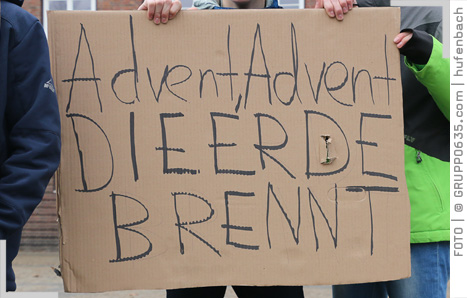 Advent, Advent
DIE ERDE
BRENNT
FOTO | © GRUPPO635.com | hufenbach